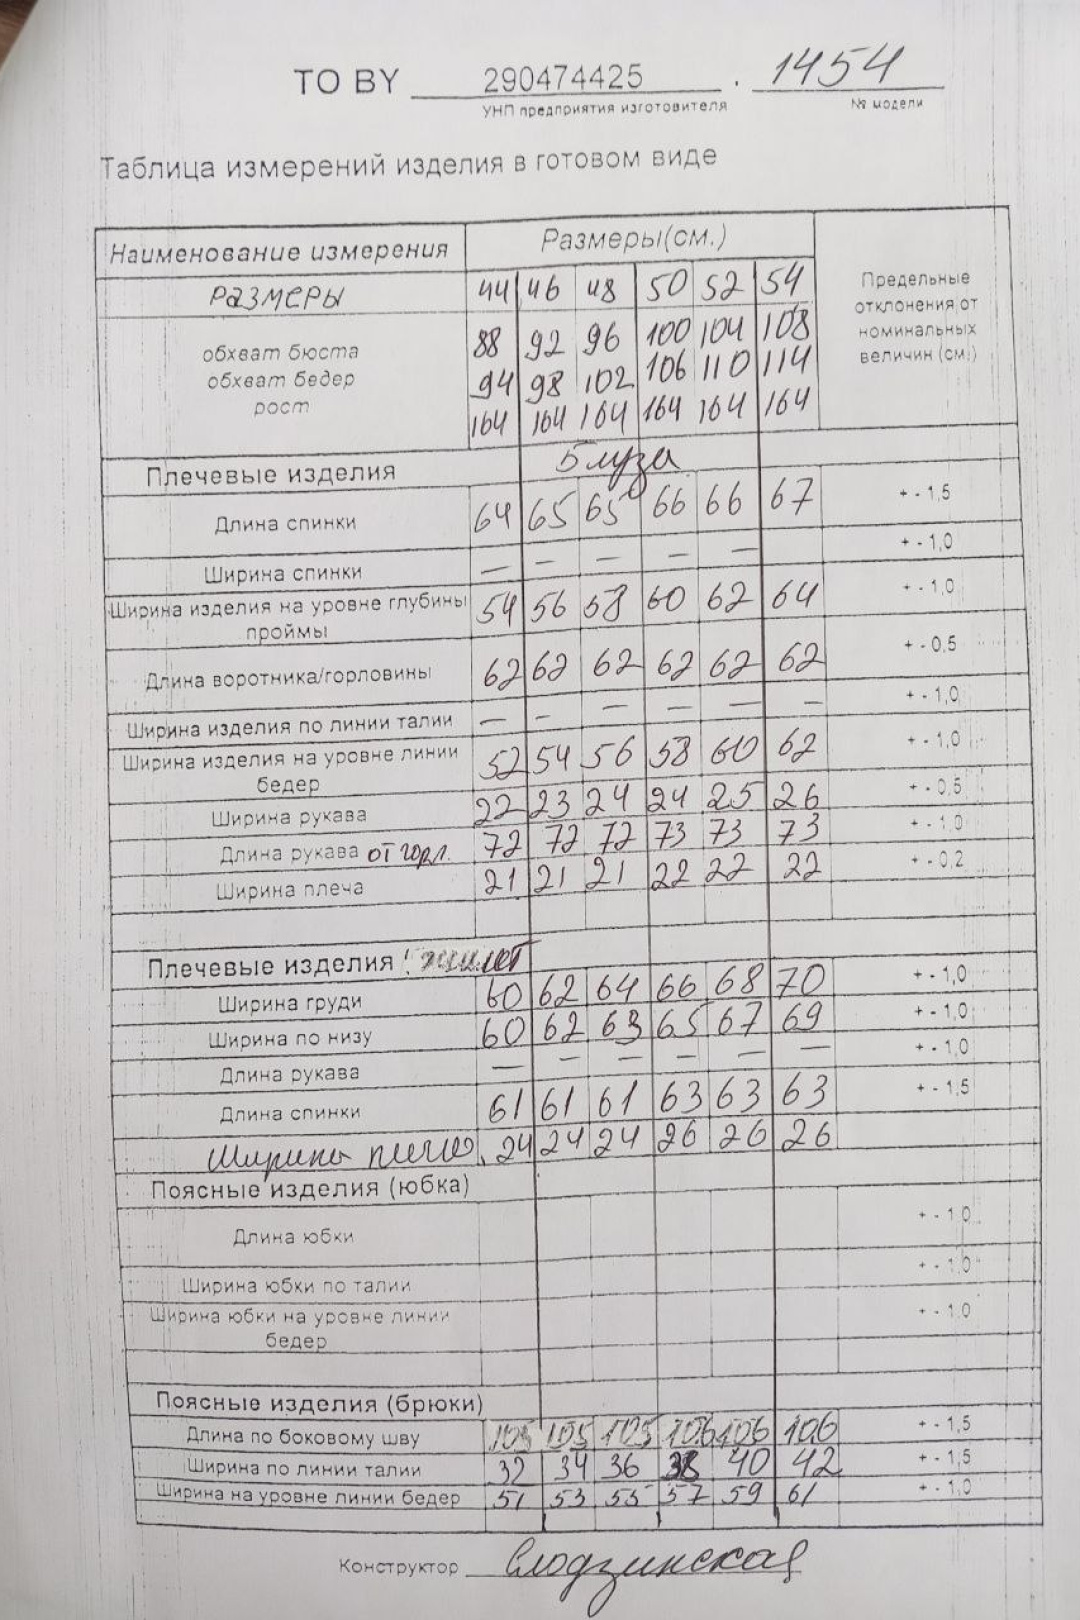 ТО BY 290474425 . 1454
УНП предприятия изготовителя № модели
Таблица измерений изделия в готовом виде
Наименование измерения Размеры(см.) Предельные отклонения от номинальных величин (см.)
РАЗМЕРЫ 44 46 48 50 52 54
обхват бюста 88 92 96 100 104 108
обхват бедер 94 98 102 106 110 114
рост 164 164 164 164 164 164
Плечевые изделия Блуза
Длина спинки 64 65 65 66 66 67 + - 1,5
Ширина спинки — — — — — + - 1,0
Ширина изделия на уровне глубины проймы 54 56 58 60 62 64 + - 1,0
Длина воротника/горловины 62 62 62 62 62 62 + - 0,5
Ширина изделия по линии талии — — — — — — + - 1,0
Ширина изделия на уровне линии бедер 52 54 56 58 60 62 + - 1,0
Ширина рукава 22 23 24 24 25 26 + - 0,5
Длина рукава от горл. 72 72 72 73 73 73 + - 1,0
Ширина плеча 21 21 21 22 22 22 + - 0,2
Плечевые изделия жилет
Ширина груди 60 62 64 66 68 70 + - 1,0
Ширина по низу 60 62 63 65 67 69 + - 1,0
Длина рукава — — — — — — + - 1,0
Длина спинки 61 61 61 63 63 63 + - 1,5
Ширина плеча 24 24 24 26 26 26
Поясные изделия (юбка)
Длина юбки + - 1,0
Ширина юбки по талии + - 1,0
Ширина юбки на уровне линии бедер + - 1,0
Поясные изделия (брюки)
Длина по боковому шву 105 105 105 106 106 106 + - 1,5
Ширина по линии талии 32 34 36 38 40 42 + - 1,5
Ширина на уровне линии бедер 51 53 55 57 59 61 + - 1,0
Конструктор Слодзинская